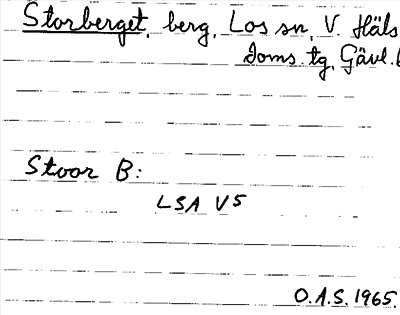 Storberget, berg, Los sn, V. Häls
doms. tg, Gävl.
Stoor B:
LSA V5
O.A.S. 1965.